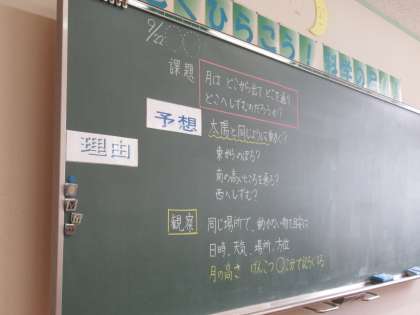 くひらこう！科学の
9/22
課題
月は どこから出て どこを通り
どこへしずむのだろうか？
予想
太陽と同じように動く？
理由
東からのぼる？
南の高いところを通る？
西へしずむ？
観察
同じ場所で、動かない物を目印に
日時、天気、場所、方位
月の高さ げんこつ